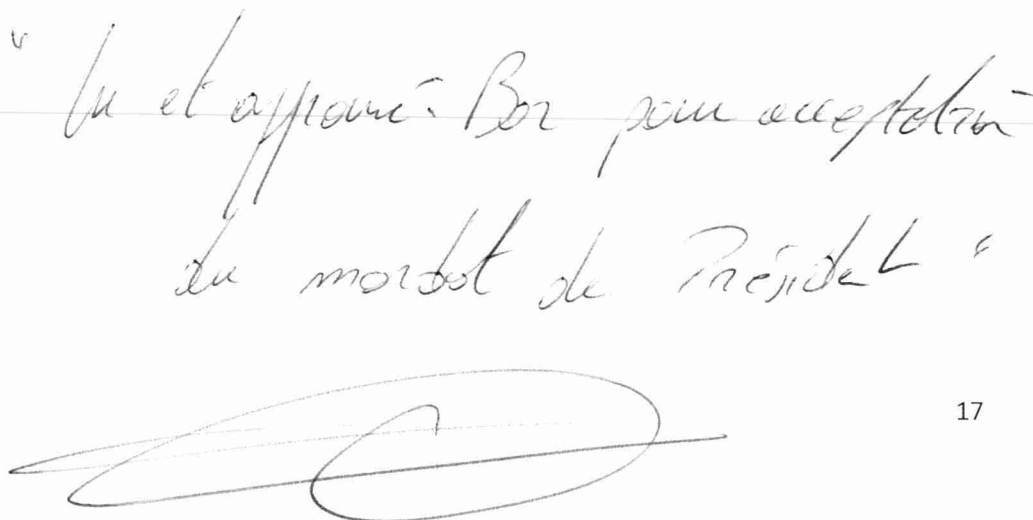 " Lu et approuvé. Bon pour acceptation
du mandat de Président "
17